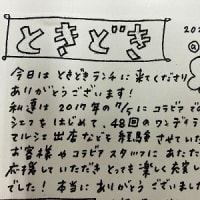 ときどき
202
今日はときどきランチに来てくださり
ありがとうございます!
私達は2017年の7/5にコラビアで
シェフをはじめて、48回のワンデイ
マルシェ出店などを経験させてい
お客様やコラビアスタッフにあたた
応援していただきとっても楽しく充実し
でした!本当にありがとうございま